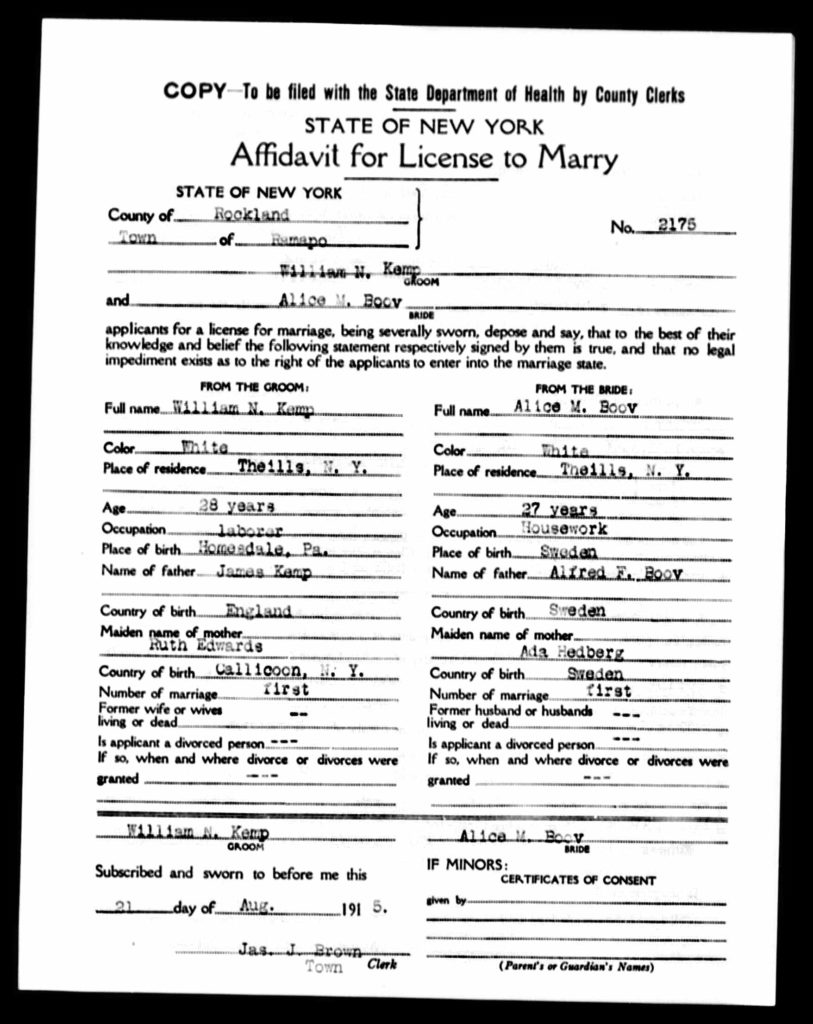 COPY—To be filed with the State Department of Health by County Clerks
STATE OF NEW YORK
Affidavit for License to Marry
STATE OF NEW YORK
County of Rockland
Town of Ramapo
No. 2175
William N. Kemp
GROOM
and Alice M. Boov
BRIDE
applicants for a license for marriage, being severally sworn, depose and say, that to the best of their
knowledge and belief the following statement respectively signed by them is true, and that no legal
impediment exists as to the right of the applicants to enter into the marriage state.
FROM THE GROOM:
Full name William N. Kemp
Color White
Place of residence Theills, N. Y.
Age 28 years
Occupation laborer
Place of birth Homesdale, Pa.
Name of father James Kemp
Country of birth England
Maiden name of mother
Ruth Edwards
Country of birth Callicoon, N. Y.
Number of marriage first
Former wife or wives
living or dead --
Is applicant a divorced person ---
If so, when and where divorce or divorces were
granted ---
FROM THE BRIDE:
Full name Alice M. Boov
Color White
Place of residence Theills, N. Y.
Age 27 years
Occupation Housework
Place of birth Sweden
Name of father Alfred F. Boov
Country of birth Sweden
Maiden name of mother
Ada Hedberg
Country of birth Sweden
Number of marriage first
Former husband or husbands
living or dead ---
Is applicant a divorced person ---
If so, when and where divorce or divorces were
granted ---
William N. Kemp
GROOM
Subscribed and sworn to before me this
21 day of Aug. 1915.
Jas. J. Brown
Town Clerk
Alice M. Boov
BRIDE
IF MINORS:
CERTIFICATES OF CONSENT
given by
(Parent's or Guardian's Names)